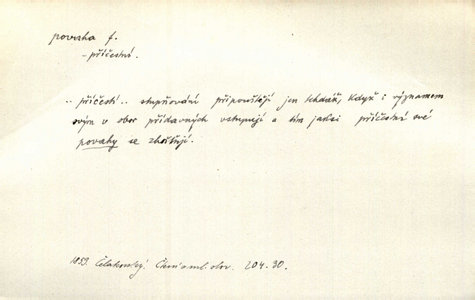 povaha f.
- příčestní.
.. příčestí .. stupňování připouštějí jen tehdáž, když i významem
svým v obor přídavných vstupují a tím jaksi příčestní své
povahy se zhošťují.
1853. Čelakovský. Čtení o ml. slov. 204.30.